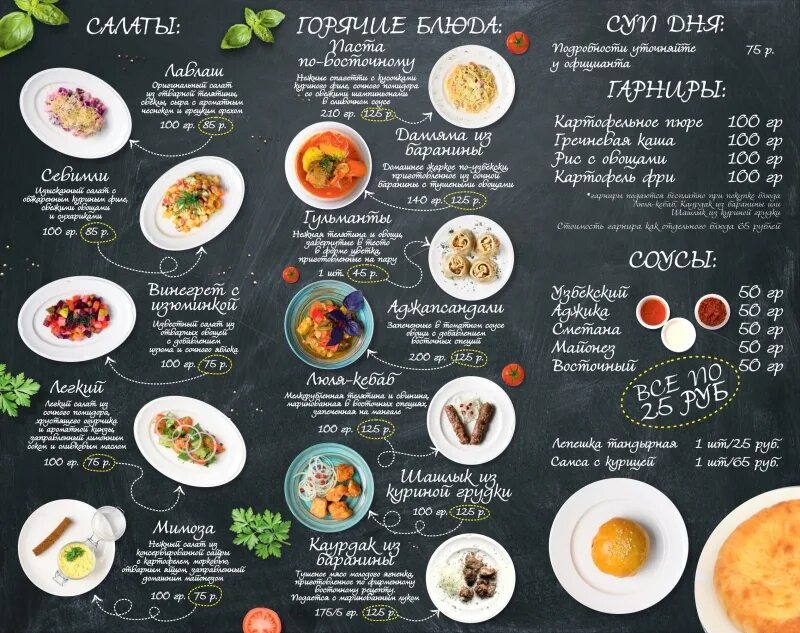 САЛАТЫ:
Лавлаш
Оригинальный салат
из отварной телятины,
свеклы, сыра с ароматным
чесноком и грецким орехом
100 гр. 85 р.
Севимли
Изысканный салат с
обжаренным куриным филе,
свежими овощами
и сухариками
100 гр. 85 р.
Винегрет с
изюминкой
Известный салат из
отварных овощей
с добавлением
изюма и сочного яблока
100 гр. 75 р.
Легкий
Легкий салат из
сочного помидора,
хрустящего огурчика
и ароматной кинзы,
заправленный лимонным
соком и оливковым маслом
100 гр. 75 р.
Мимоза
Нежный салат из
консервированной сайры
с картофелем, морковью,
отварным яйцом, заправленный
домашним майонезом
100 гр. 75 р.
ГОРЯЧИЕ БЛЮДА:
Паста
по-восточному
Нежные спагетти с кусочками
куриного филе, сочного помидора
со свежими шампиньонами
в сливочном соусе
210 гр. 125 р.
Дамляма из
баранины
Домашнее жаркое по-узбекски,
приготовленное из сочной
баранины с тушеными овощами
140 гр. 125 р.
Гульманты
Нежная телятина и овощи,
завернутые в тесто
в форме цветка,
приготовленные на пару
1 шт. 45 р.
Аджапсандали
Запеченные в томатном соусе
овощи с добавлением
восточных специй
200 гр. 125 р.
Люля-кебаб
Мелкорубленная телятина и свинина,
маринованная в восточных специях,
запеченная на мангале
100 гр. 125 р.
Шашлык из
куриной грудки
100 гр. 125 р.
Каурдак из
баранины
Тушеное мясо молодого ягненка,
приготовленное по фирменному
восточному рецепту.
Подается с маринованным луком
175/5 гр. 125 р.
СУП ДНЯ:
Подробности уточняйте
у официанта 75 р.
ГАРНИРЫ:
Картофельное пюре 100 гр
Гречневая каша 100 гр
Рис с овощами 100 гр
Картофель фри 100 гр
*гарниры подаются бесплатно при покупке блюда
Люля-кебаб, Каурдак из баранины или
Шашлык из куриной грудки
Стоимость гарнира как отдельного блюда 65 рублей
СОУСЫ:
Узбекский 50 гр
Аджика 50 гр
Сметана 50 гр
Майонез 50 гр
Восточный 50 гр
ВСЕ ПО
25 РУБ
Лепешка тандырная 1 шт/25 руб.
Самса с курицей 1 шт/65 руб.